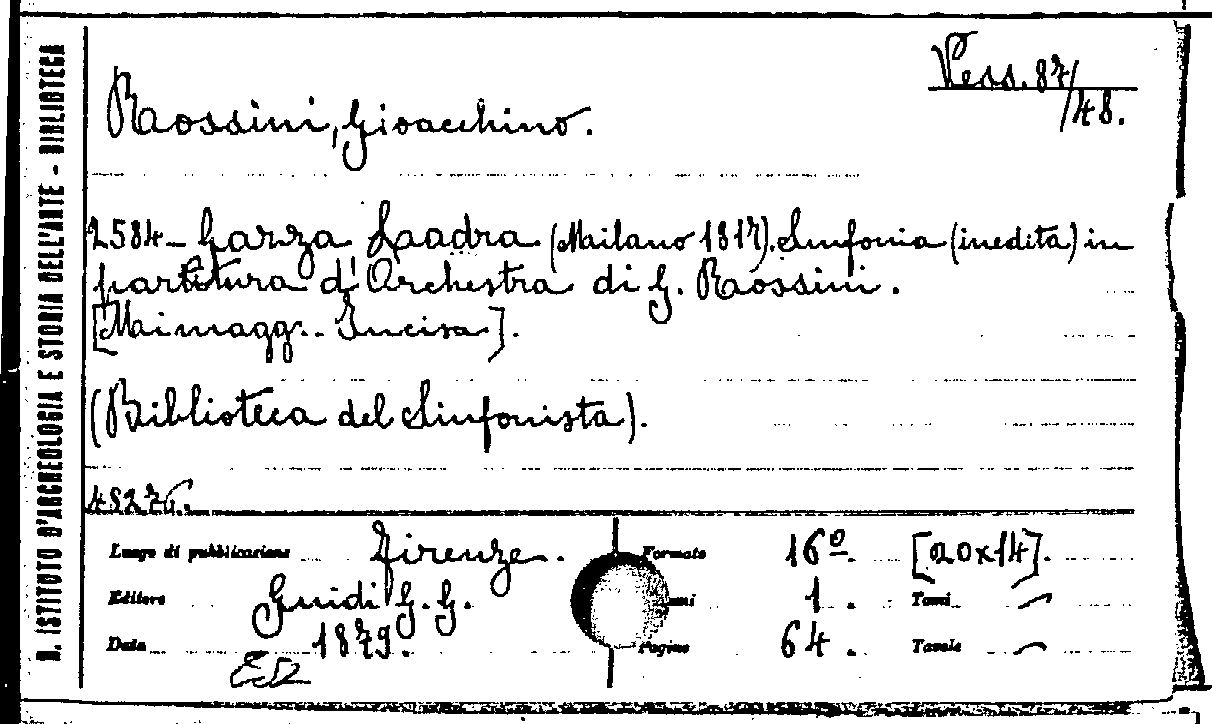 R. ISTITUTO D'ARCHEOLOGIA E STORIA DELL'ARTE - BIBLIOTECA
Vess. 87/48.
Rossini, Gioacchino.
2584 - Gazza Laadra (Milano 1817). Sinfonia (inedita) in
partitura d'Orchestra di G. Rossini.
[Mi magg.. Incisa].
(Biblioteca del Sinfonista).
48276.
Luogo di pubblicazione Firenze. Formato 16º. [20x14].
Editore Guidi G. G. 1. Tomi —
Data 1879. Pagine 64. Tavole —